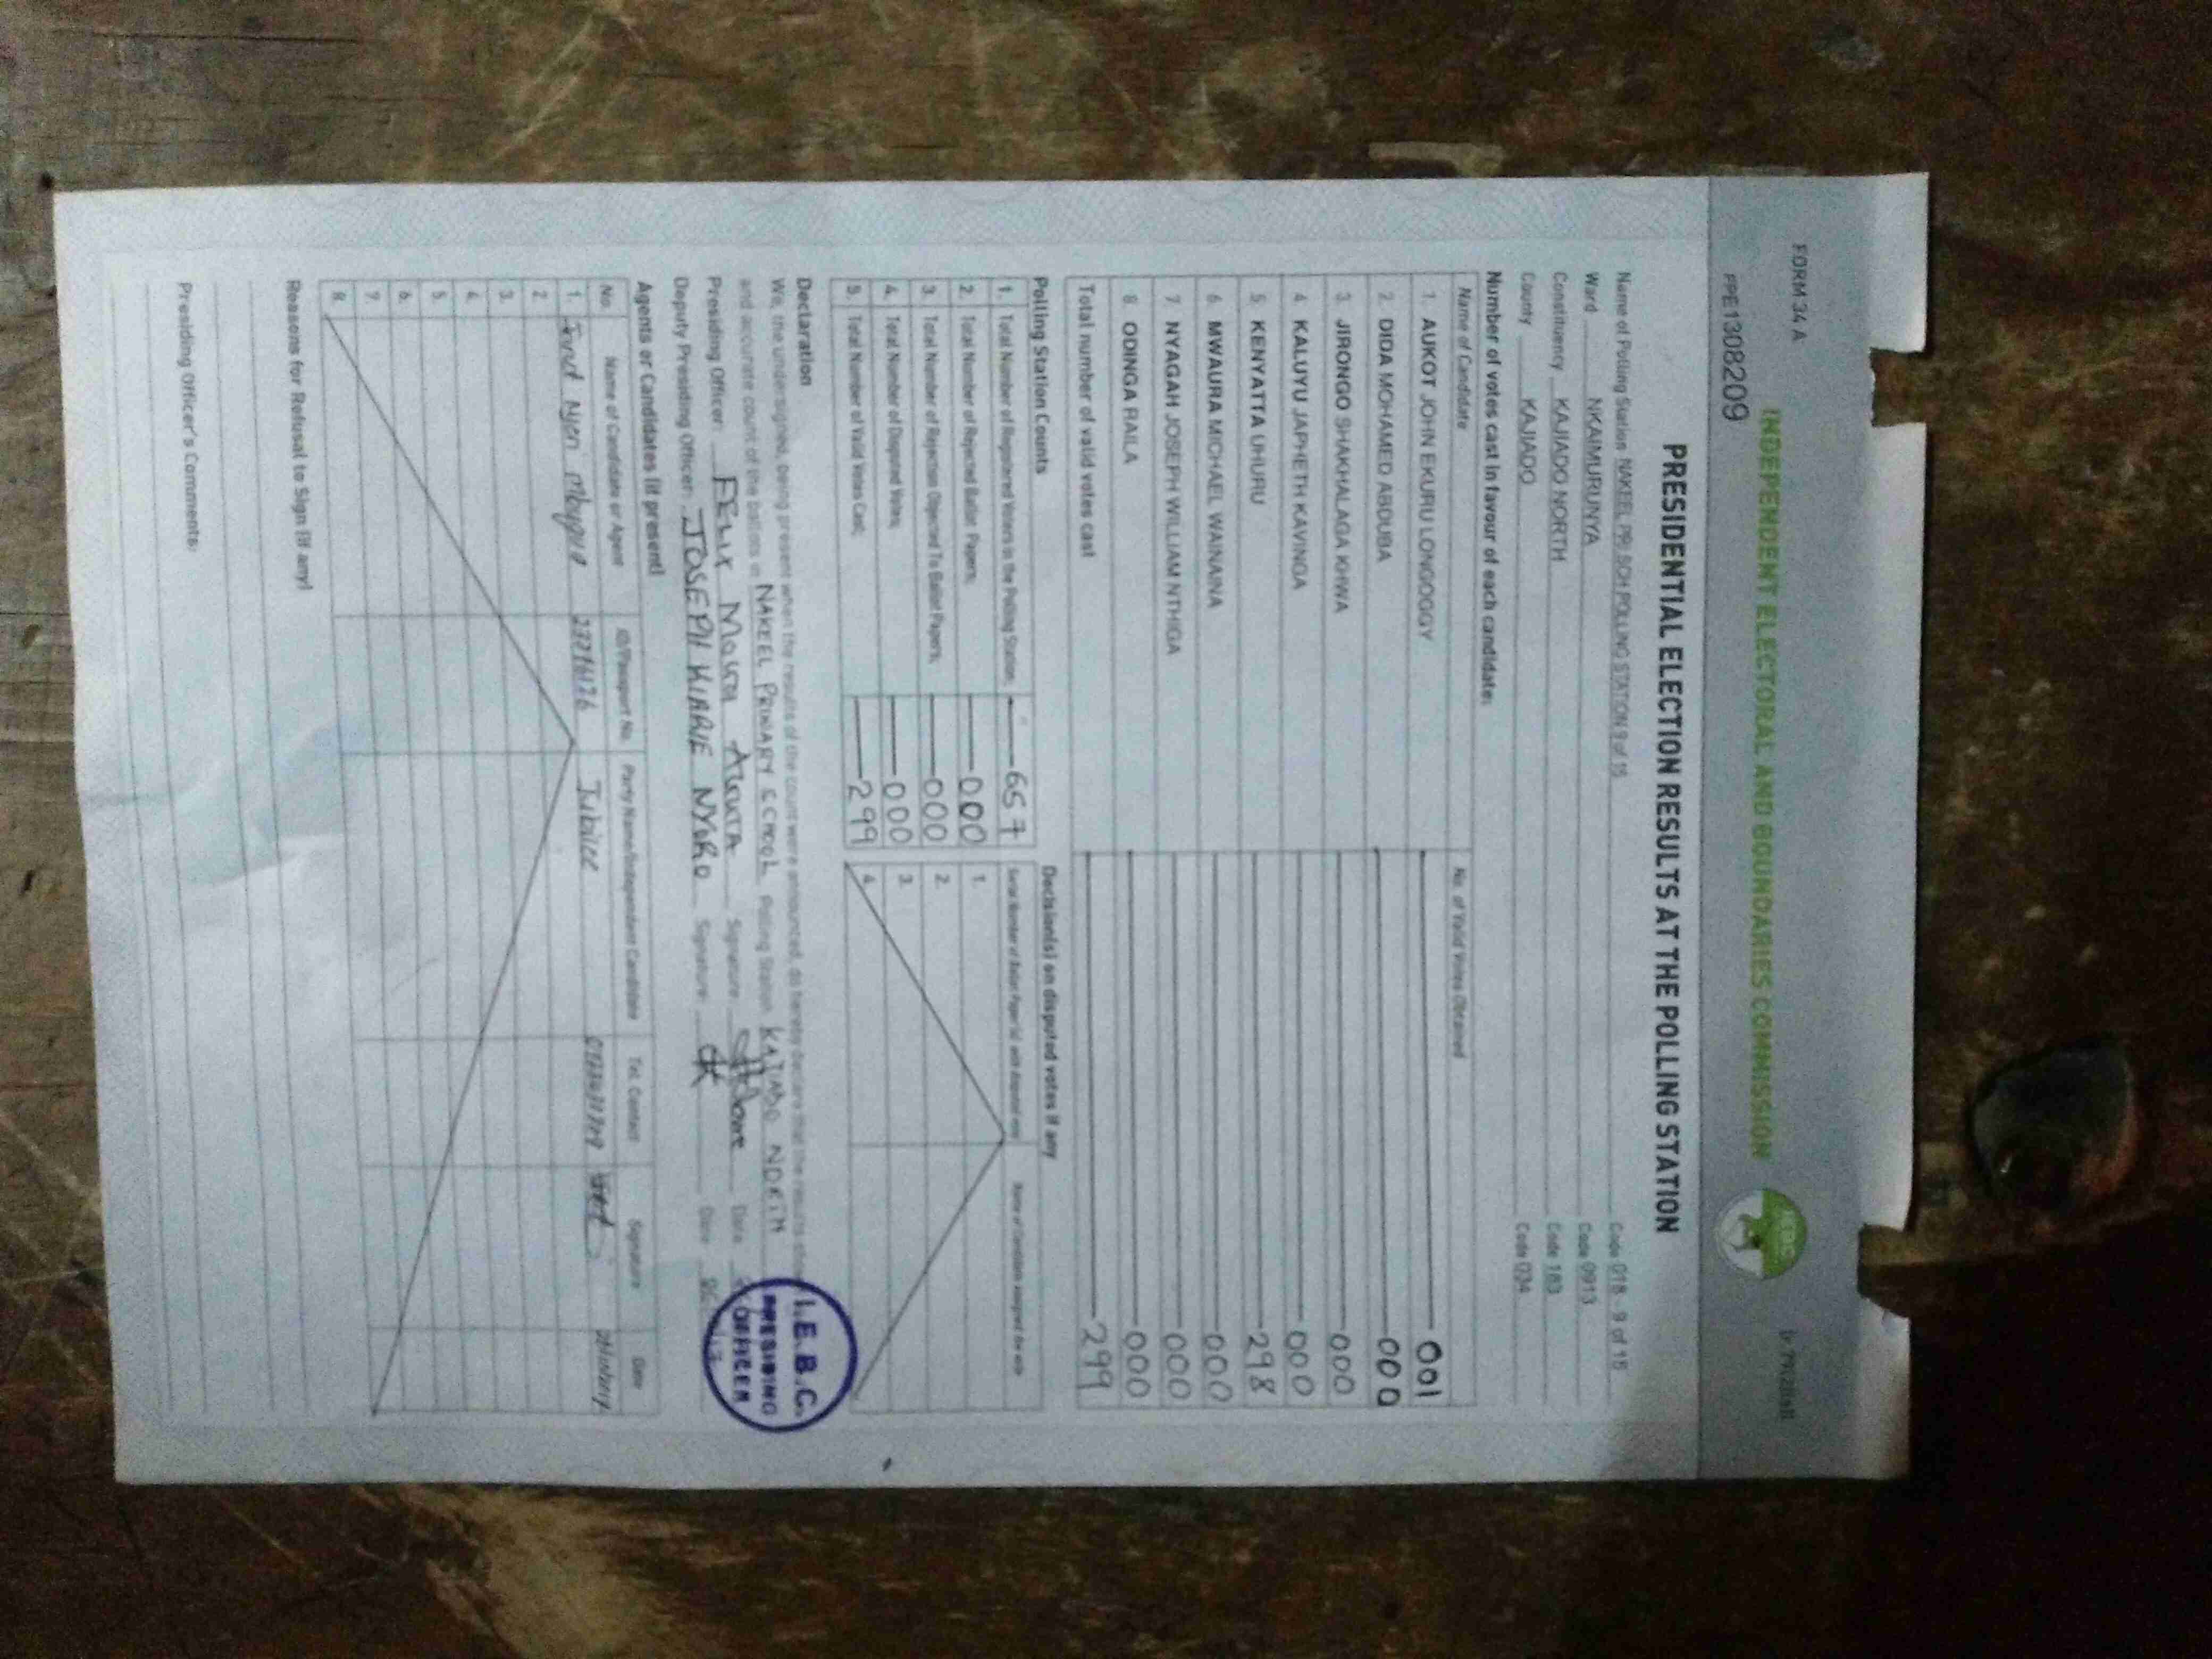 FORM 34 A
INDEPENDENT ELECTORAL AND BOUNDARIES COMMISSION
FPE1308209
PRESIDENTIAL ELECTION RESULTS AT THE POLLING STATION
Name of Polling Station NAKEEL PRI SCH POLLING STATION 9 of 15 Code 018 - 9 of 15
Ward NKAIMURUNYA Code 0913
Constituency KAJIADO NORTH Code 183
County KAJIADO Code 034
Number of votes cast in favour of each candidate:
Name of Candidate No. of Valid Votes Obtained
1. AUKOT JOHN EKURU LONGOGGY 001
2. DIDA MOHAMED ABDUBA 000
3. JIRONGO SHAKHALAGA KHWA 000
4. KALUYU JAPHETH KAVINGA 000
5. KENYATTA UHURU 298
6 MWAURA MICHAEL WAINAINA 000
7 NYAGAH JOSEPH WILLIAM NTHIGA 000
8 ODINGA RAILA 000
Total number of valid votes cast 299
Polling Station Counts
1. Total Number of Registered Voters in the Polling Station; 657
2. Total Number of Rejected Ballot Papers; 000
3. Total Number of Rejection Objected To Ballot Papers; 000
4. Total Number of Disputed Votes; 000
5. Total Number of Valid Votes Cast; 299
Decision(s) on disputed votes if any
1.
2.
3.
4.
Declaration
We, the undersigned, being present when the results of the count were announced, do hereby declare that the results
and accurate count of the ballots in NAKEEL PRIMARY SCHOOL Polling Station KAJIADO NORTH
Presiding Officer: FELIX Signature: Date
Deputy Presiding Officer: JOSEPH KIARIE NYORO Signature: Date
I.E.B.C.
PRESIDING
OFFICER
Agents or Candidates (if present)
No. Name of Candidate or Agent ID/Passport No. Party Name/Independent Candidate Tel. Contact Signature Date
1. Jubilee
2.
3.
4.
5.
6.
7.
8.
Reasons for Refusal to Sign (if any)
Presiding Officer's Comments: